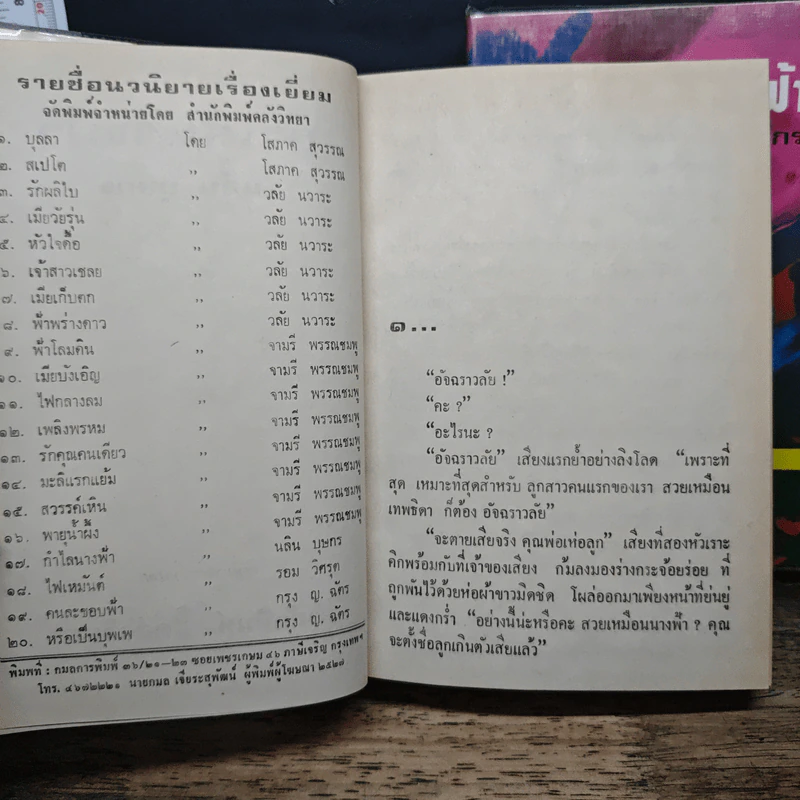 รายชื่อนวนิยายเรื่องเยี่ยม
จัดพิมพ์จำหน่ายโดย สำนักพิมพ์คลังวิทยา
๑. บุลลา โดย โสภาค สุวรรณ
๒. สเปโต ,, โสภาค สุวรรณ
๓. รักผลิใบ ,, วลัย นวาระ
๔. เมียวัยรุ่น ,, วลัย นวาระ
๕. หัวใจดื้อ ,, วลัย นวาระ
๖. เจ้าสาวเชลย ,, วลัย นวาระ
๗. เมียเก็บตก ,, วลัย นวาระ
๘. ฟ้าพร่างดาว ,, วลัย นวาระ
๙. ฟ้าโลมดิน ,, จามรี พรรณชมพู
๑๐. เมียบังเอิญ ,, จามรี พรรณชมพู
๑๑. ไฟกลางลม ,, จามรี พรรณชมพู
๑๒. เพลิงพรหม ,, จามรี พรรณชมพู
๑๓. รักคุณคนเดียว ,, จามรี พรรณชมพู
๑๔. มะลิแรกแย้ม ,, จามรี พรรณชมพู
๑๕. สวรรค์เหิน ,, จามรี พรรณชมพู
๑๖. พายุน้ำผึ้ง ,, นลิน บุษกร
๑๗. กำไลนางฟ้า ,, รอม วิศรุต
๑๘. ไฟเหมันต์ ,, กรุง ญ. ฉัตร
๑๙. คนละขอบฟ้า ,, กรุง ญ. ฉัตร
๒๐. หรือเป็นบุพเพ ,, กรุง ญ. ฉัตร
พิมพ์ที่ : กมลการพิมพ์ ๓๖/๒๑—๒๓ ซอยเพชรเกษม ๔๖ ภาษีเจริญ กรุงเทพฯ
โทร. ๔๖๗๒๒๒๑ นายกมล เจียระสุพัฒน์ ผู้พิมพ์ผู้โฆษณา ๒๕๒๗
๑...
“อัจฉราวลัย !”
“คะ ?”
“อะไรนะ ?
“อัจฉราวลัย” เสียงแรกย้ำอย่างลิงโลด “เพราะที่
สุด เหมาะที่สุดสำหรับ ลูกสาวคนแรกของเรา สวยเหมือน
เทพธิดา ก็ต้อง อัจฉราวลัย”
“จะตายเสียจริง คุณพ่อเห่อลูก” เสียงที่สองหัวเราะ
คิกพร้อมกับที่เจ้าของเสียง ก้มลงมองร่างกระจ้อยร่อย ที่
ถูกพันไว้ด้วยห่อผ้าขาวมิดชิด โผล่ออกมาเพียงหน้าที่ย่นยู่
และแดงก่ำ “อย่างนี้น่ะหรือคะ สวยเหมือนนางฟ้า ? คุณ
จะตั้งชื่อลูกเกินตัวเสียแล้ว”